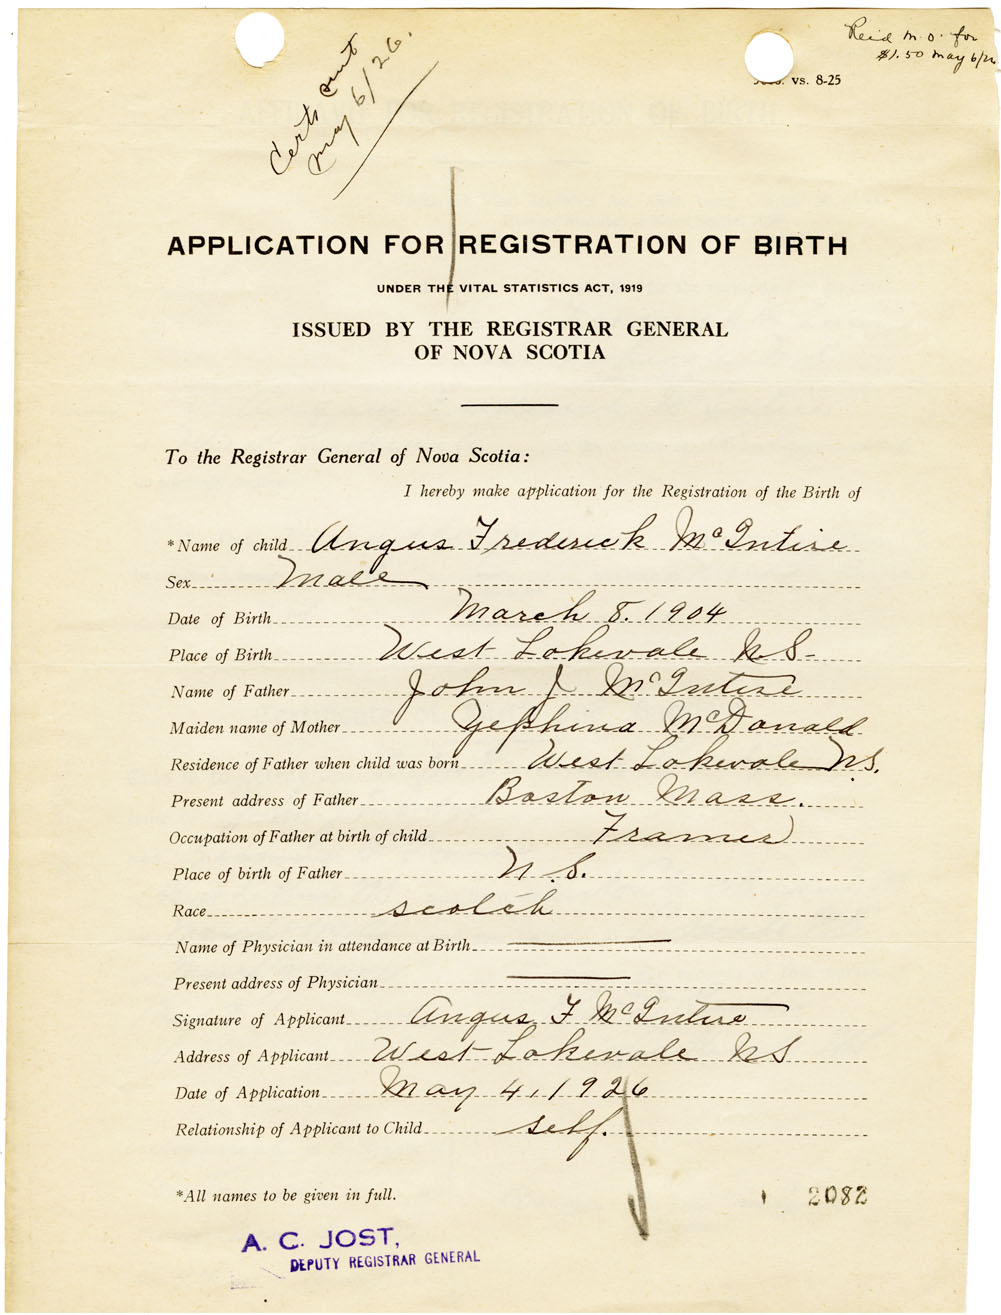 Certs sent
May 6/26.
Recd M.O. for
$1.50 May 6/26
vs. 8-25
APPLICATION FOR REGISTRATION OF BIRTH
UNDER THE VITAL STATISTICS ACT, 1919
ISSUED BY THE REGISTRAR GENERAL
OF NOVA SCOTIA
To the Registrar General of Nova Scotia:
I hereby make application for the Registration of the Birth of
*Name of child Angus Frederick McIntire
Sex Male
Date of Birth March 8. 1904
Place of Birth West Lokevale N.S-
Name of Father John J McIntire
Maiden name of Mother Yephina McDonald
Residence of Father when child was born West Lokevale N.S.
Present address of Father Boston Mass.
Occupation of Father at birth of child Framer
Place of birth of Father N.S.
Race scotch
Name of Physician in attendance at Birth
Present address of Physician
Signature of Applicant Angus F McIntire
Address of Applicant West Lokevale NS
Date of Application May 4, 1926
Relationship of Applicant to Child self.
*All names to be given in full.
2082
A. C. JOST,
DEPUTY REGISTRAR GENERAL